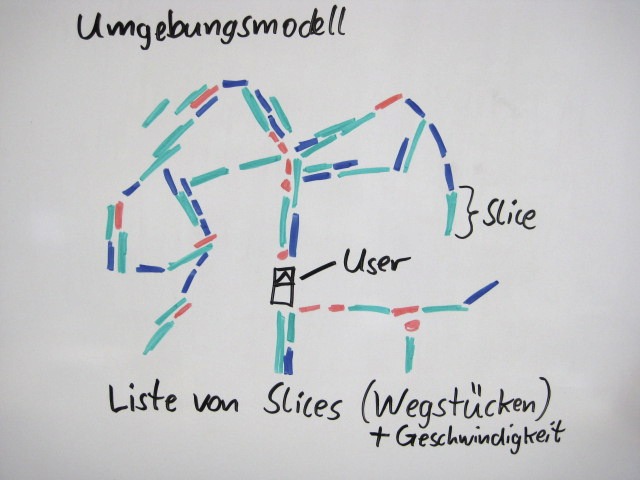 Umgebungsmodell
} Slice
User
Liste von Slices (Wegstücken)
+ Geschwindigkeit